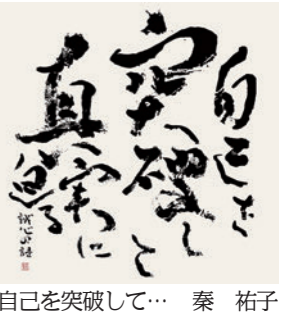 自己を
突破し
て
真実に
迫る
誠心の語
自己を突破して… 秦 祐子